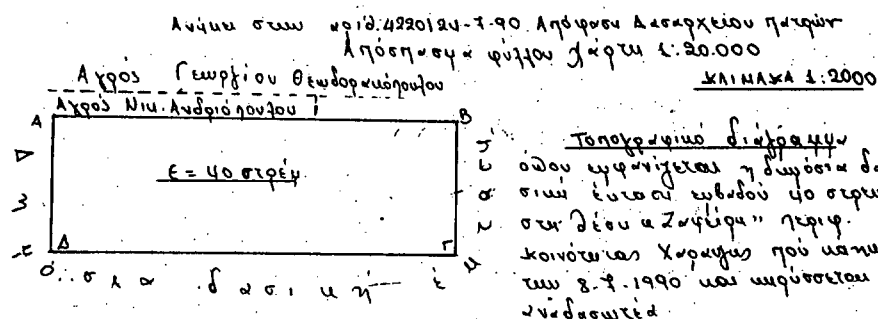 Ανήκει στην αριθ. 4220/24-7-90 Απόφαση Δασαρχείου Πατρών
Απόσπασμα φύλλου χάρτη 1:20.000
Αγρός Γεωργίου Θεωδορακόπουλου
ΚΛΙΜΑΚΑ 1:2000
Αγρός Νικ. Ανδριόπουλου
Α
Β
Ε = 40 στρέμ
Δ
Γ
δασική
Τοπογραφικό διάγραμμα
όπου εμφανίζεται η δημόσια δα
σική έκταση εμβαδού 40 στρεμ
στη θέση "Ζαφείρη" περιφ.
κοινότητας Χαραυγής που κάηκε
την 8-7-1990 και κηρύσσεται
αναδασωτέα